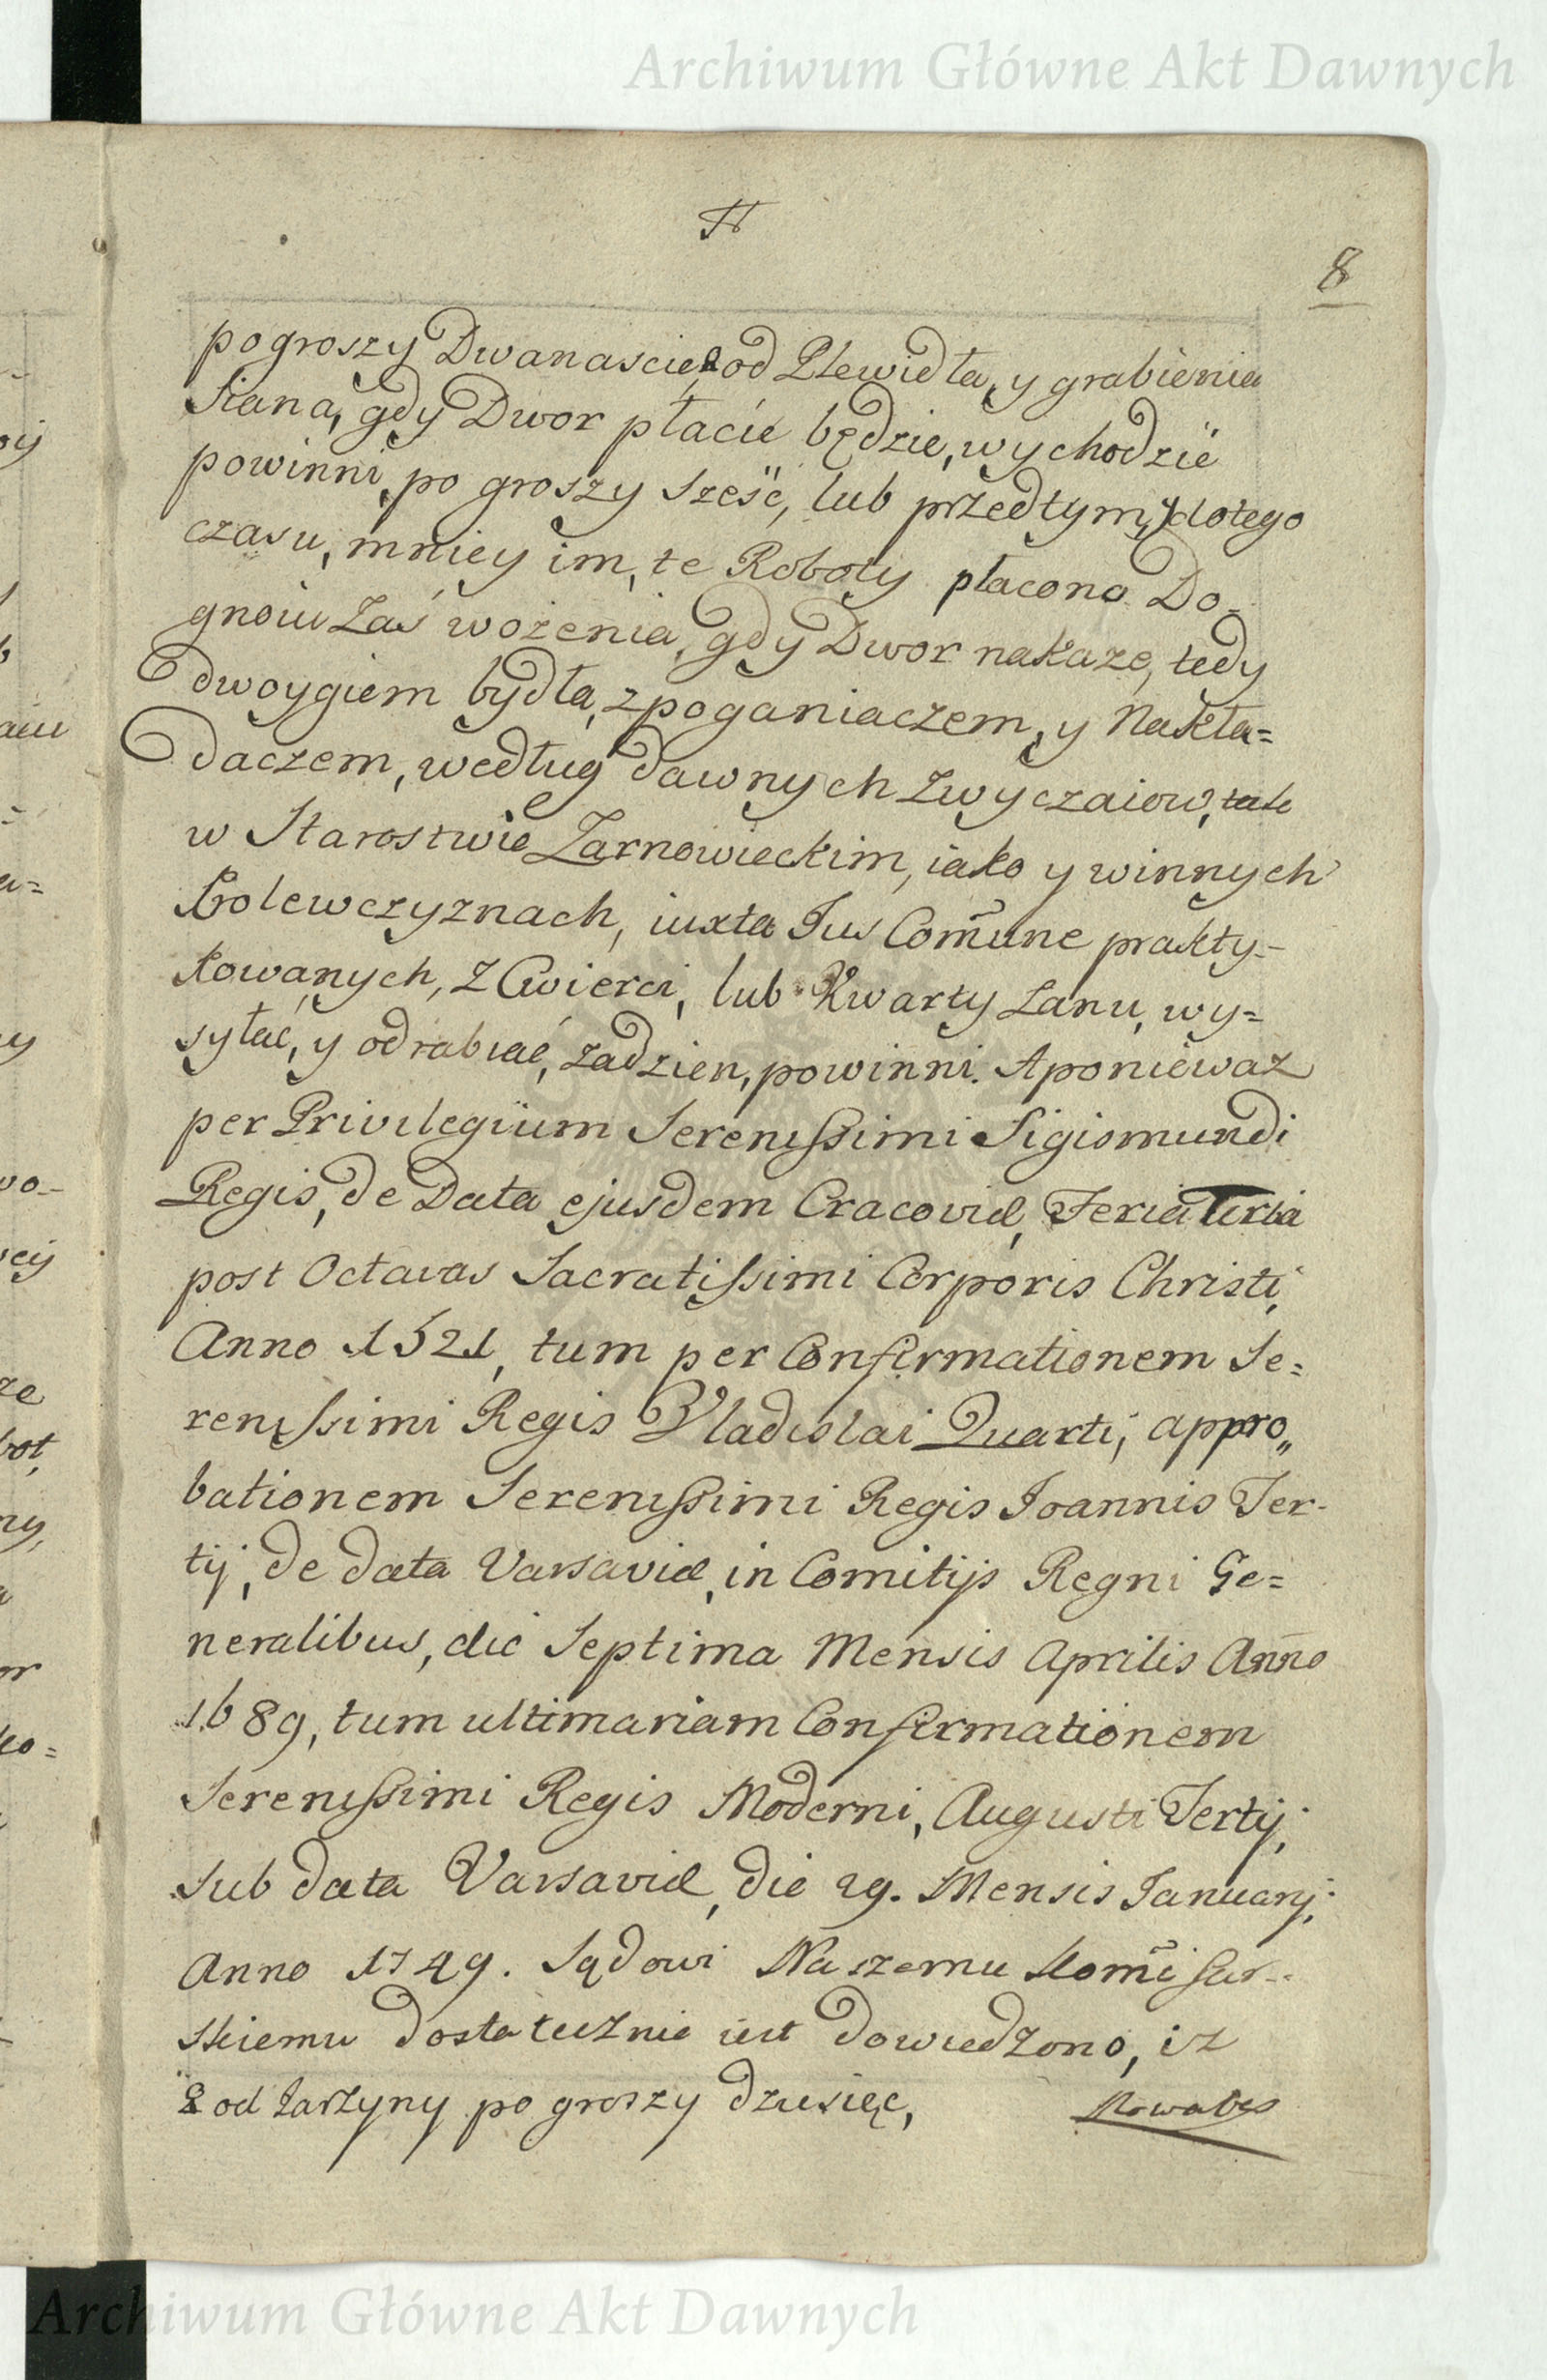 Archiwum Główne Akt Dawnych
8
po groszy Dwanascie, & od Plewidła, y grabienia
Siana, gdy Dwor płacić będzie, wychodzić
powinni, po groszy sześć, lub przedtym, y dotego
czasu, mniey im, te Roboty płacono Do-
gnoiu Zaś wożenia, gdy Dwor nakaże, tedy
dwoygiem bydła, z poganiaczem, y Nakła=
daczem, według dawnych Zwyczaiow, tak
w Starostwie Zarnowieckim, iako y winnych
Krolewczyznach, iuxta Jus Com̃une prakty-
kowanych, z Cwierci, lub Kwarty Lanu, wy=
syłać, y odrabiać, zadzien, powinni. A poniewaz
per Privilegium Serenissimi Sigismundi
Regis, de Data ejusdem Cracoviæ, Feria Tertia
post Octavas Sacratissimi Corporis Christi,
Anno 1521, tum per Confirmationem Se=
renissimi Regis Vladislai Quarti, appro„
bationem Serenissimi Regis Joannis Ter-
tij, de data Varsaviæ, in Comitijs Regni Ge=
neralibus, die Septima Mensis Aprilis Anno
1689, tum ultimariam Confirmationem
Serenissimi Regis Moderni, Augusti Tertij,
sub data Varsaviæ, die 29. Mensis Januarij,
Anno 1749. Sądowi Naszemu Kom̃isar-
skiemu dostatecznie iest dowiedzono, iz
& od Zarzyny po groszy dziesięć,
Archiwum Główne Akt Dawnych